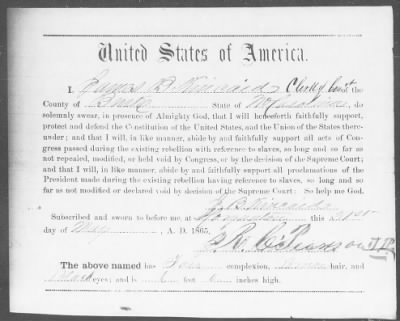 United States of America.
I, James B Kincaid Clerk of Court
County of Burke State of N Carolina, do
solemnly swear, in presence of Almighty God, that I will henceforth faithfully support,
protect and defend the Constitution of the United States, and the Union of the States there-
under; and that I will, in like manner, abide by and faithfully support all acts of Con-
gress passed during the existing rebellion with reference to slaves, so long and so far as
not repealed, modified, or held void by Congress, or by the decision of the Supreme Court;
and that I will, in like manner, abide by and faithfully support all proclamations of the
President made during the existing rebellion having reference to slaves, so long and so
far as not modified or declared void by decision of the Supreme Court: So help me God.
J. B. Kincaid
Subscribed and sworn to before me, at Morganton this
day of A. D. 1865,
The above named has Fair complexion, hair, and
Black eyes; and is 6 feet inches high.